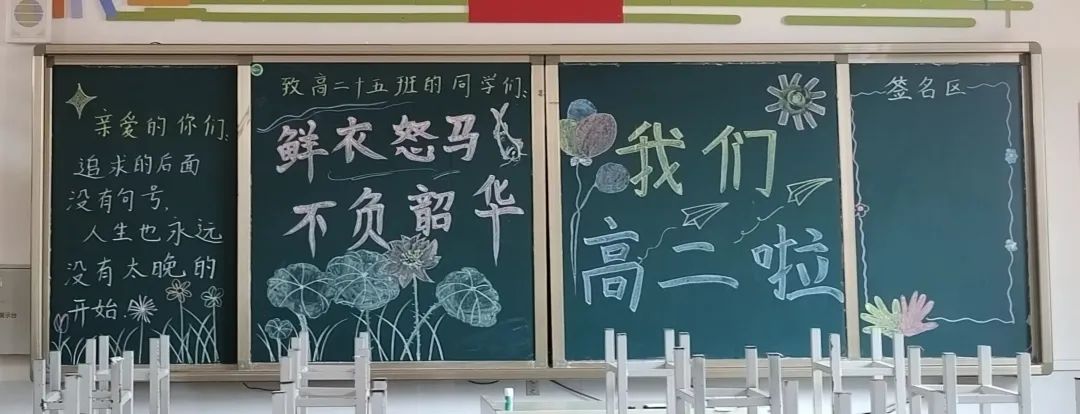 亲爱的你们：
追求的后面
没有句号，
人生也永远
没有太晚的
开始.
致高二十五班的同学们：
鲜衣怒马
不负韶华
我们
高二啦
签名区